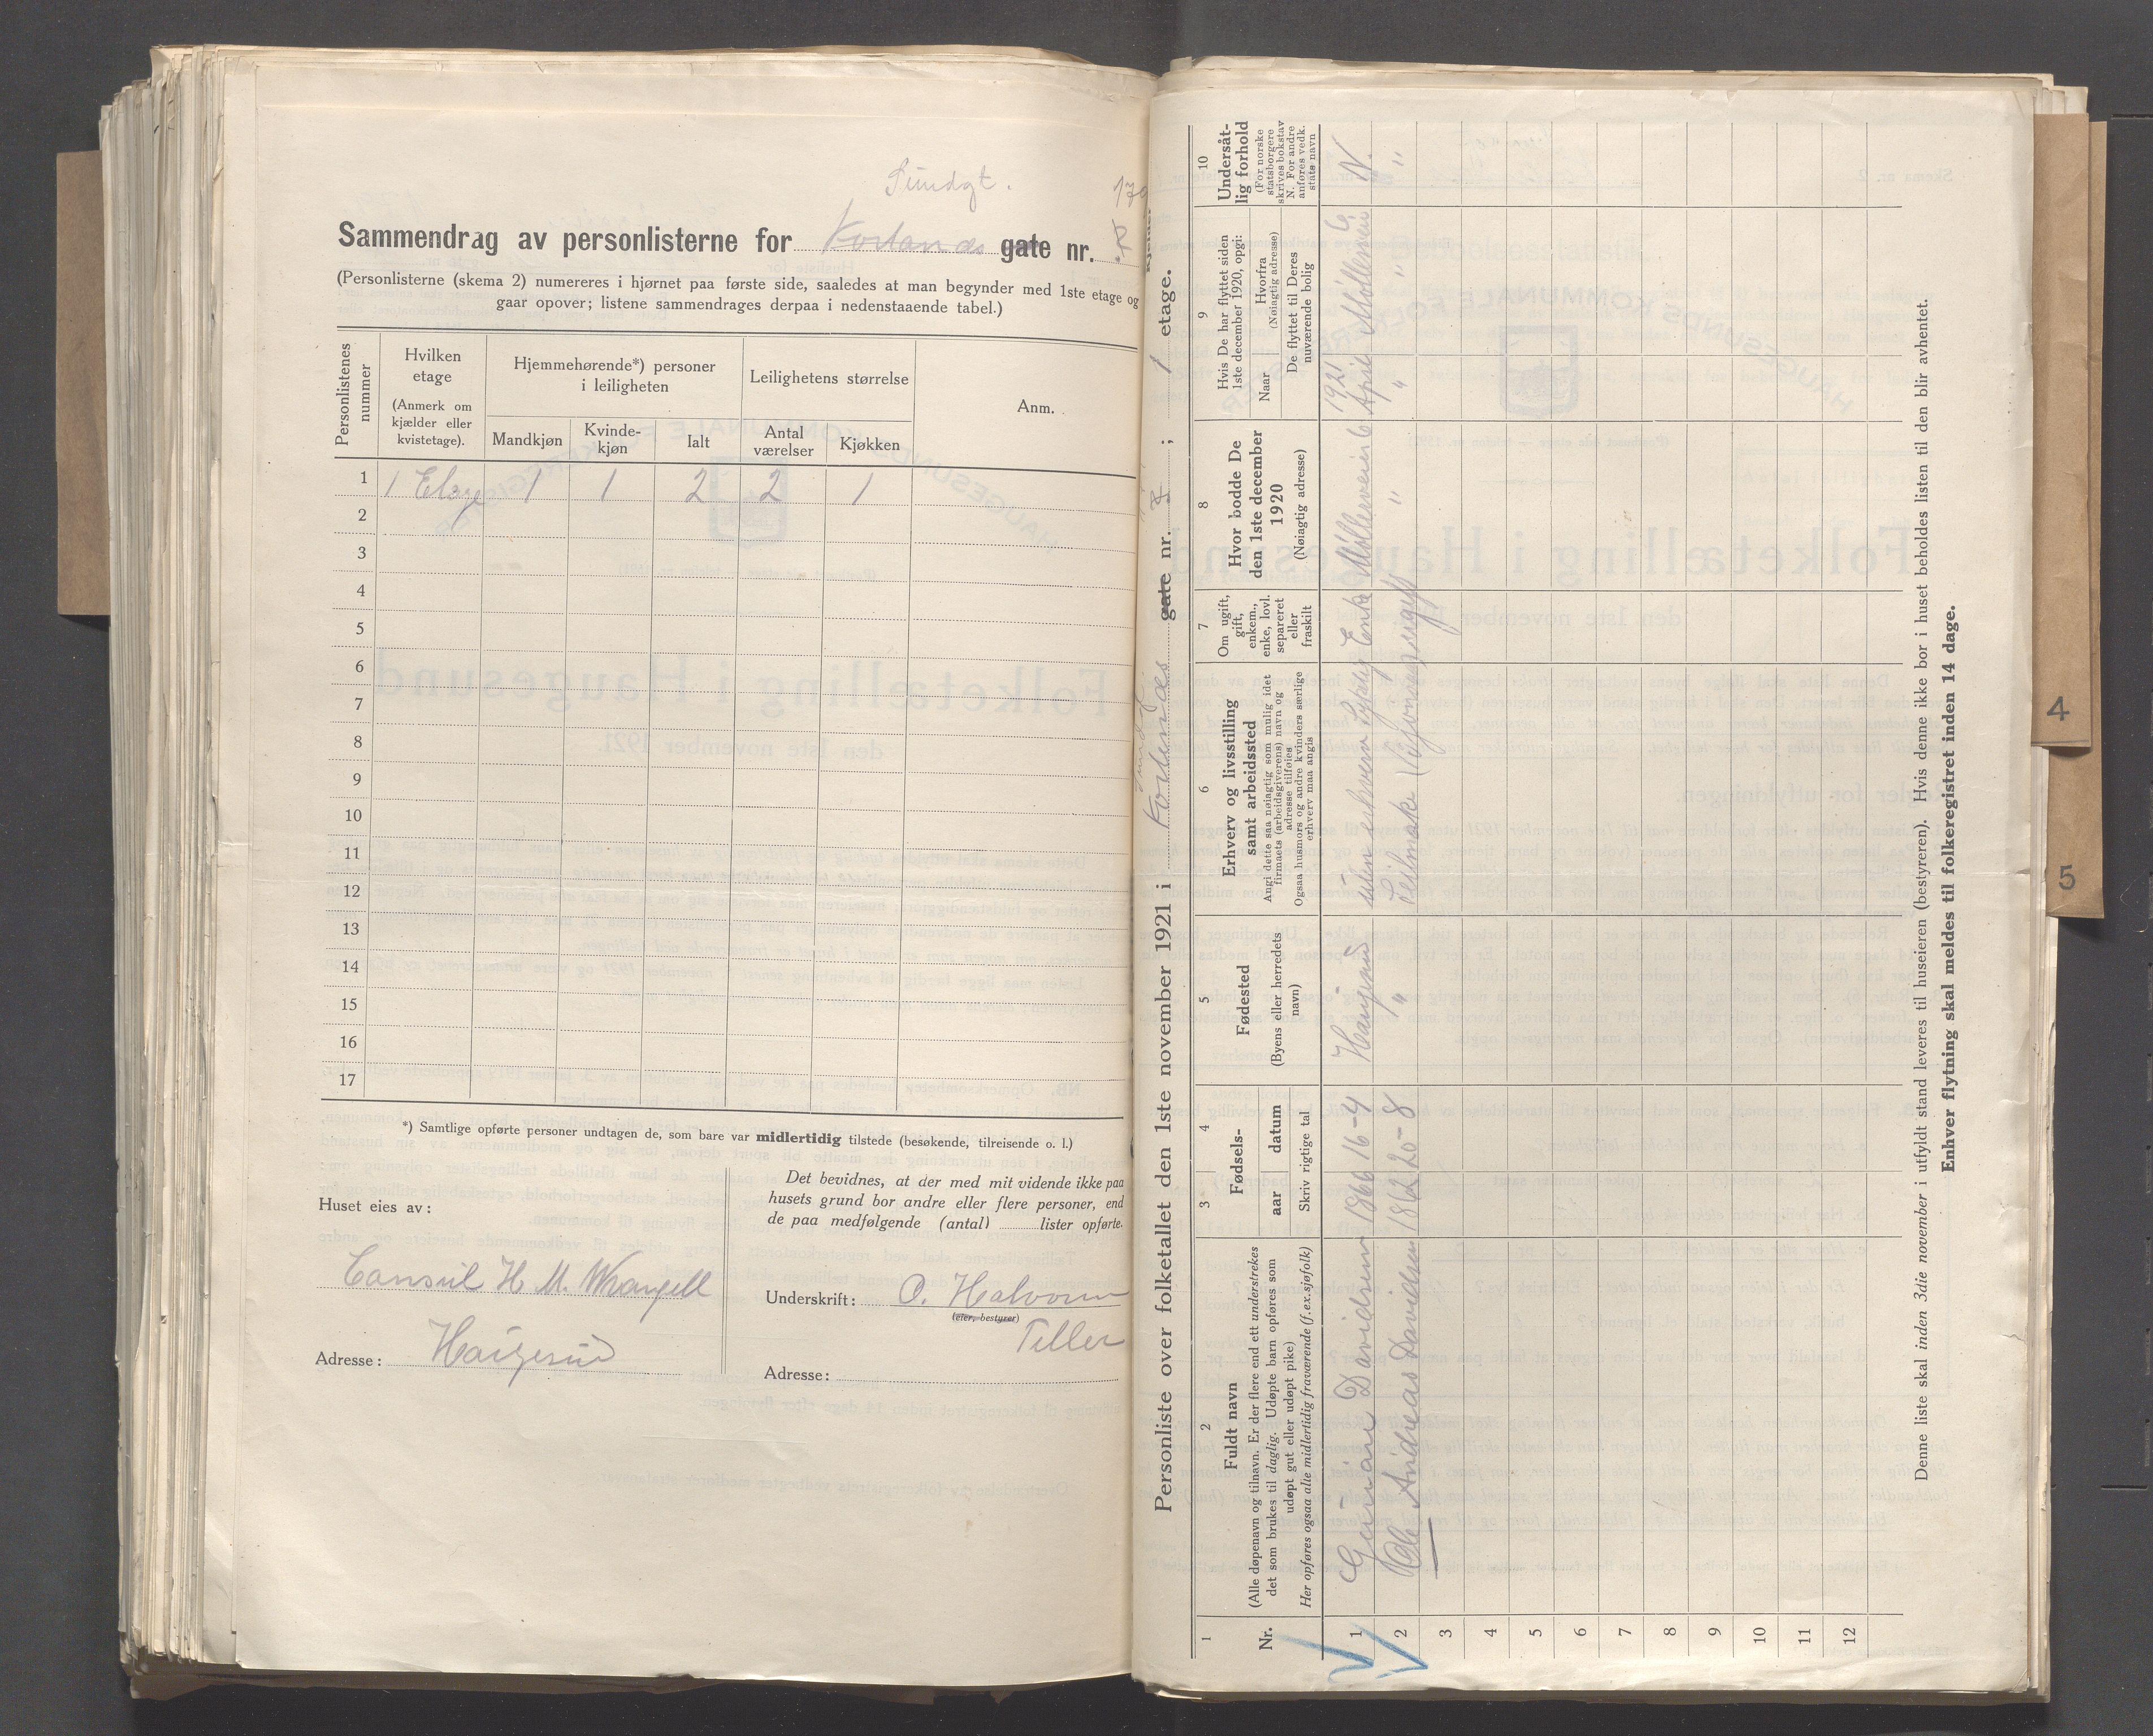 Sundgt. 170
Sammendrag av personlisterne for gate nr. 8
(Personlisterne (skema 2) numereres i hjørnet paa første side, saaledes at man begynder med 1ste etage og
gaar opover; listene sammendrages derpaa i nedenstaaende tabel.)
Personlistenes nummer
Hvilken etage
(Anmerk om kjælder eller kvistetage).
Hjemmehørende*) personer i leiligheten
Mandkjøn
Kvinde-kjøn
Ialt
Leilighetens størrelse
Antal værelser
Kjøkken
Anm.
1 1 Etage 1 1 2 2 1
2
3
4
5
6
7
8
9
10
11
12
13
14
15
16
17
*) Samtlige opførte personer undtagen de, som bare var midlertidig tilstede (besøkende, tilreisende o. l.)
Huset eies av:
Consul H. M. Wrangell
Adresse: Haugesund
Det bevidnes, at der med mit vidende ikke paa
husets grund bor andre eller flere personer, end
de paa medfølgende (antal) lister opførte.
Underskrift: O. Halvorsen
(eier, bestyrer)
Teller
Adresse:
Personliste over folketallet den 1ste november 1921 i gate nr. 8 ; 1 etage.
1
Nr.
2
Fuldt navn
(Alle døpenavn og tilnavn. Er der flere end ett understrekes
det som brukes til daglig. Udøpte barn opføres som
udøpt gut eller udøpt pike)
Her opføres ogsaa alle midlertidig fraværende (f. ex. sjøfolk)
3 4
Fødsels-
aar datum
Skriv rigtige tal
5
Fødested
(Byens eller herredets
navn)
6
Erhverv og livsstilling
samt arbeidssted
Angi dette saa nøiagtig som mulig idet
firmaets (arbeidsgiverens) navn og
adresse tilføies
Ogsaa husmors og andre kvinders særlige
erhverv maa angis
7
Om ugift,
gift,
enkem.,
enke, lovl.
separeret
eller
fraskilt
8
Hvor bodde De
den 1ste december
1920
(Nøiagtig adresse)
9
Hvis De har flyttet siden
1ste december 1920, opgi:
Naar
Hvorfra
(Nøiagtig adresse)
De flyttet til Deres
nuværende bolig
10
Undersåt-
lig forhold
(For norske
statsborgere
skrives bokstav
N. For andre
anføres vedk.
stats navn
1 Davidsen 1866 16-4 Haugesund uten erhverv Enke Mølleveien 6 1921 April Mølleveien 6 N.
2 Ole Andreas Davidsen 1862 20-8 " Seilmaker ugift " " " "
3
4
5
6
7
8
9
10
11
12
Denne liste skal inden 3die november i utfyldt stand leveres til huseieren (bestyreren). Hvis denne ikke bor i huset beholdes listen til den blir avhentet.
Enhver flytning skal meldes til folkeregistret inden 14 dage.
4
5